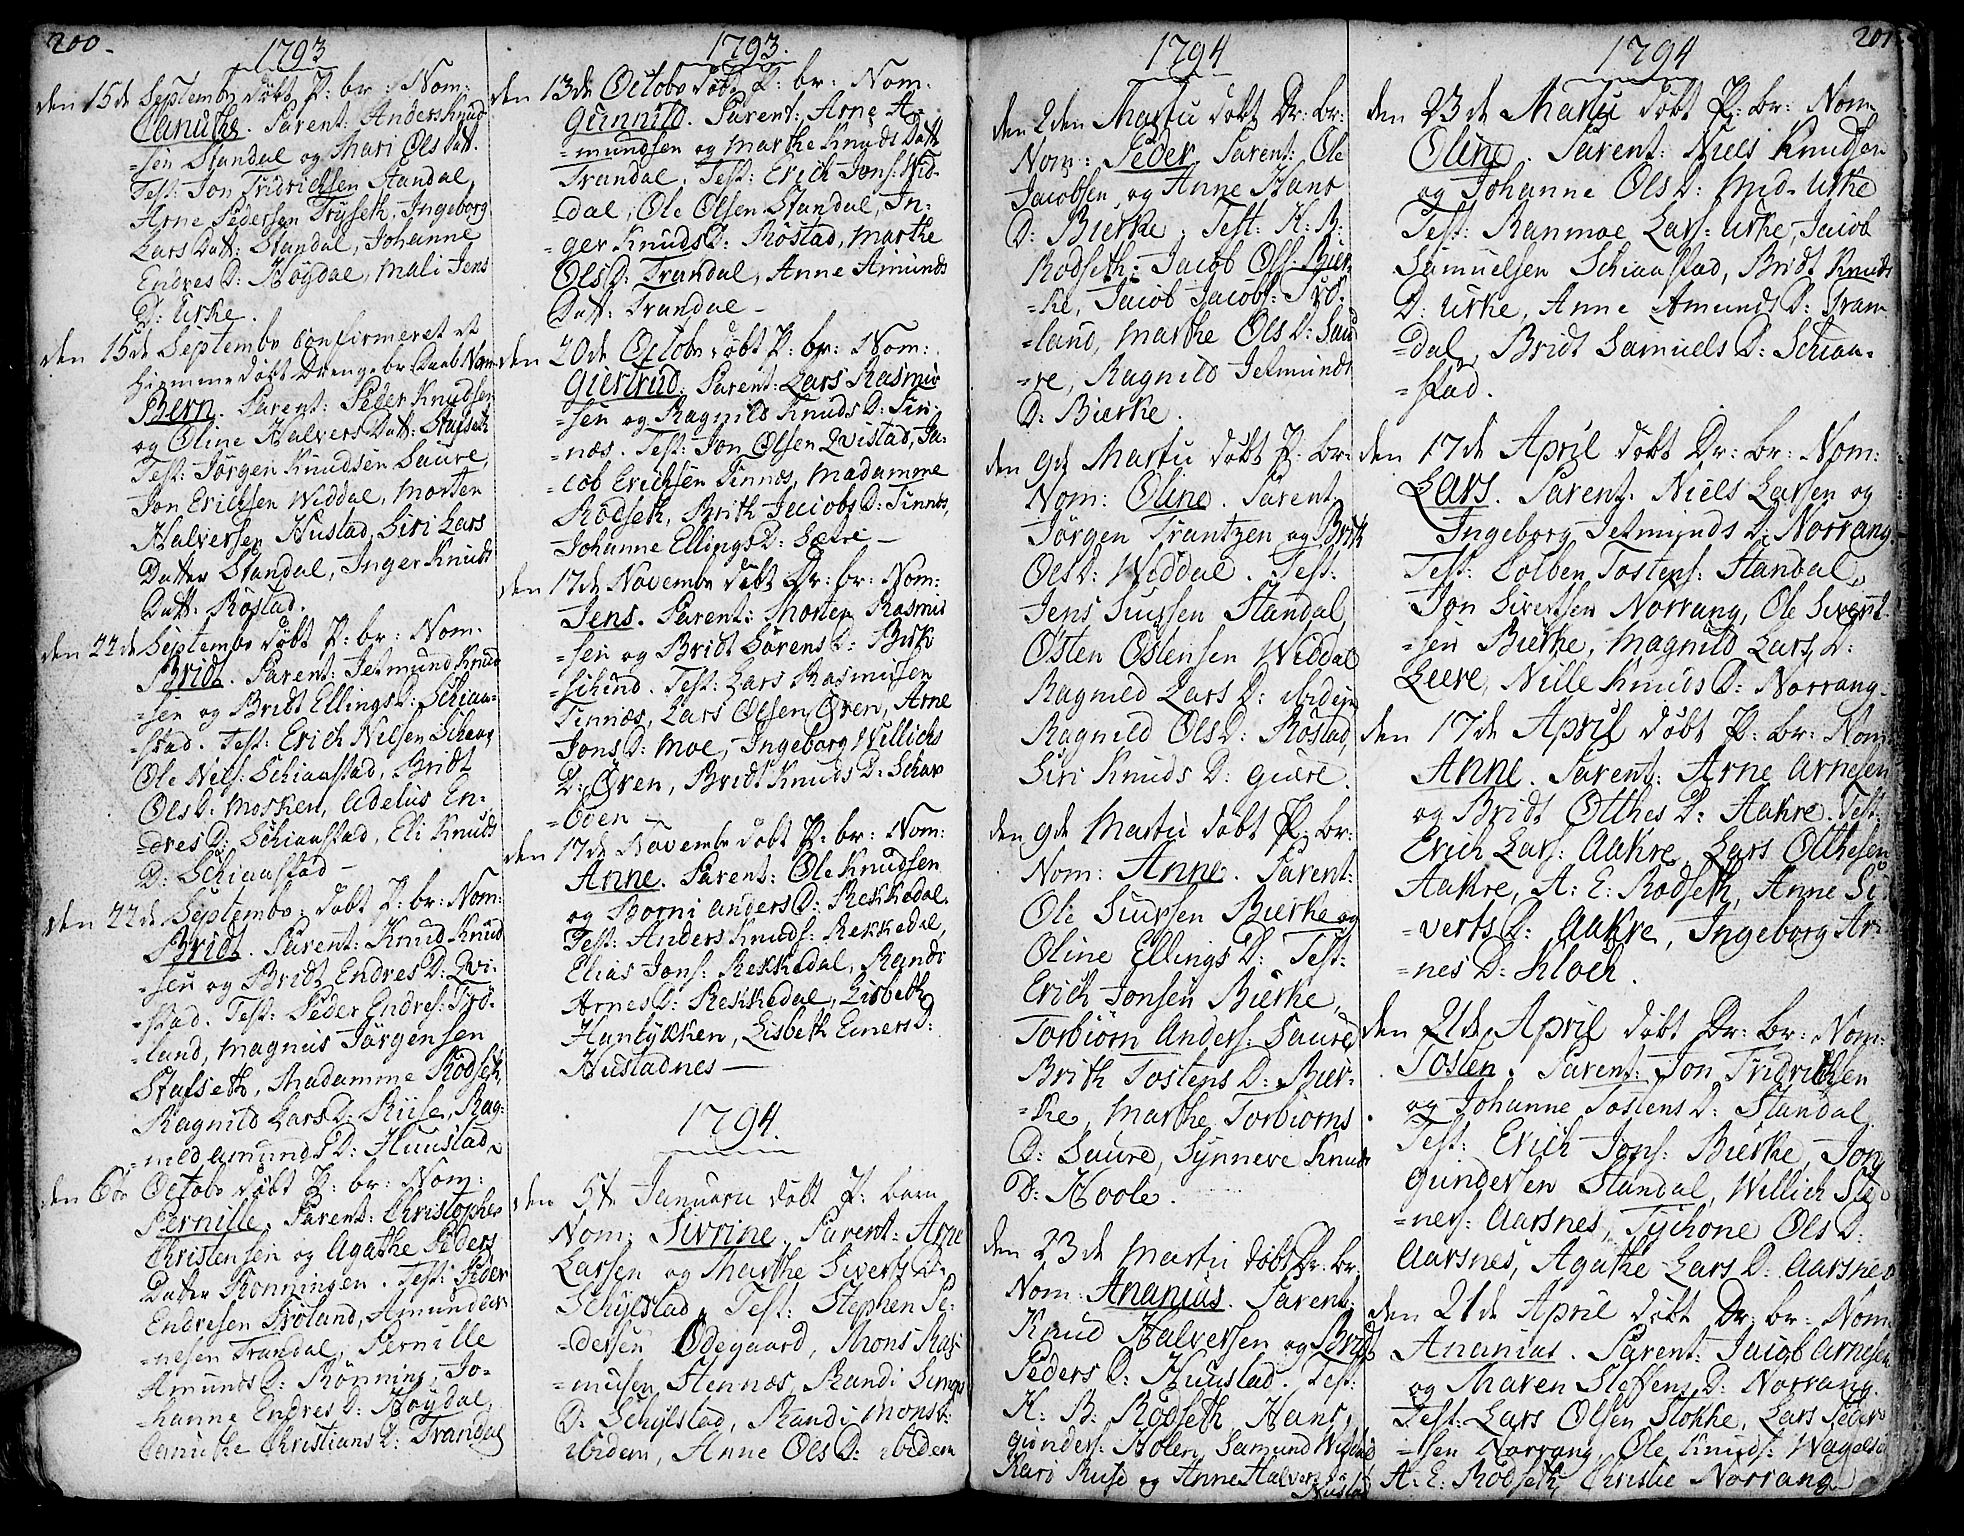 200.
1793
den 15de Septembr döbt P: br: Nom:
Canuthe. Parent: Anders Knud
=sen Standal og Mari Ols Datt.
Test: Jon Fridrichsen Standal,
Arne Pedersen Tryseth, Ingeborg
Lars Datt: Standal, Johanne
Endres D: Høydal, Mali Jens
D: Urke.
den 15de Septembr Confirmeret et
hiemmedøbt Drengebr: Nom
Bern. Parent: Peder Knudsen
og Oline Halvers Datt: Stafseth
Test: Jørgen Knudsen Saure,
Jon Erichsen Widdal, Morten
Halversen Hustad, Siri Lars
Datter Standal, Inger Knuds
Datt: Røstad.
den 22de Septembr døbt P: br: Nom.
Bridt. Parent: Jetmund Knud
=sen og Bridt Ellings D: Schiaa=
=stad. Test: Erich Nielsen Schaa,
Ole Niels: Schiaastad, Bridt
Ols D: Mosken, Adelus En=
=dres D: Schiaastad, Eli Knuds
D: Schiaastad —
den 22de Septembr døbt P: br: Nom:
Bridt. Parent: Knud Knud
=sen og Bridt Endres D: Qvi=
=stad. Test: Peder Endres: Frø=
=land, Magnus Jørgensen
Stafseth, Madamme Rødseth,
Ragnild Lars D: Riise, Rag=
=nild Amunds D: Huustad
den 6te Octobr døbt P: br: Nom:
Pernille. Parent: Christopher
Christensen og Agathe Peders
Datter Rønningen. Test: Peder
Endresen Frøland, Amund Ar
=nesen Trandal, Pernille
Amunds D: Rønning, Jo=
=hanne Endres D: Høydal,
Canuthe Christians D: Trandal
1793.
den 13de Octobr døbt P: br: Nom.
Gunnild. Parent: Arne A=
=mundsen og Marthe Knuds Datt
Trandal, Test: Erich Jons: Wid=
=dal, Ole Olsen Standal, In=
=ger Knuds D: Røstad, Marthe
Ols D: Trandal, Anne Amunds
Datt: Trandal —
den 20de Octobr døbt P: br: Nom:
Giertrud. Parent: Lars Rasmus
=sen og Ragnild Knuds D: Fin=
=næs. Test: Jon Olsen Qvistad, Ja=
=cob Erichsen Finnæs, Madamme
Rødseth, Brith Jacobs D: Finnæs,
Johanne Ellings D: Sætre —
den 17de Novembr døbt Dr: br: Nom:
Jens. Parent: Morten Rasmus
=sen og Bridt Sørens D: Birk
=schund. Test: Lars Rasmussen
Finnæs, Lars Olsen Øren, Arne
Jons D: Moe, Ingeborg Willichs
D: Øren, Bridt Knuds D: Schar
=Øen —
den 17de Novembr døbt P: br: Nom:
Anne. Parent: Ole Knudsen
og Borni Anders D: Rekkedal.
Test: Anders Knuds: Rekkedal,
Elias Jons: Rekkedal, Randi
Arnes D: Rekkedal, Lisbeth
Hanlykken, Lisbeth Einers D:
Hustadnes —
1794.
den 5te Januarii døbt P: barn
Nom: Sivrine. Parent: Arne
Larsen og Marthe Siverts D:
Schylstad. Test: Stephen Pe=
=dersen Ødegaard, Mons Ras
=musen Stennæs, Randi Simons
D: Schylstad, Randi Mons D:
ibidem, Anne Ols D: ibidem
1794
den 2den Martii døbt Dr: br:
Nom: Peder. Parent: Ole
Jacobsen og Anne Hans
D: Bierke. Test: K: B:
Rødseth: Jacob Ols: Bier
=ke, Jacob Jacobs: Frø.
=land, Marthe Ols D: Sau
=re, Ragnild Jetmunds
D: Bierke.
den 9de Martii døbt P: br:
Nom: Oline. Parent.
Jørgen Frantzen og Brith
Ols D: Widdal. Test:
Jens Suursen Standal,
Østen Østensen Widdal
Ragnild Lars D: ibidem
Ragnild Ols D: Røstad,
Siri Knuds D: Giære.
den 9de Martii døbt P: br:
Nom: Anne. Parent:
Ole Suursen Bierke og
Oline Ellings D: Test:
Erich Jonsen Bierke,
Torbiørn Anders: Saure,
Brith Tostens D: Bier=
=ke, Marthe Torbiørns
D: Saure, Synneve Knuds
D: Hoole.
den 23de Martii døbt Dr: br:
Nom: Ananius. Parent:
Knud Halversen og Bridt
Peders D: Huustad. Test:
K: B: Rødseth, Hans
Gunders: Holen, Samund
Kari Ruse og Anne Halvers D:
Hustad
201.
1794
den 23de Martii døbt P: br: Nom
Oline. Parent: Niels Knudsen
og Johanne Ols D: Mid-Urke
Test: Ranmoe Lars: Urke, Jacob
Samuelsen Schiaastad, Bridt Knuds
D: Urke, Anne Amunds D: Tran
=dal, Bridt Samuels D: Schiaa=
=stad.
den 17de April døbt Dr: br: Nom:
Lars. Parent. Niels Larsen og
Ingeborg Jetmunds D: Norrang.
Test: Colben Tostens: Standal,
Jon Sivertsen Norrang, Ole Sivert
=sen Bierke, Magnild Lars D:
Leere, Nille Knuds D: Norrang.
den 17de April døbt P: br: Nom:
Anne. Parent: Arne Arnesen
og Bridt Otthes D: Aakre. Test:
Erich Lars: Aakre, Lars Otthesen
Aakre, A: E: Rødseth, Anne Si
=verts D: Aakre, Ingeborg Ar
=nes D: Kloch.
den 21de April døbt Dr: br: Nom:
Tosten. Parent: Jon Fridrichsen
og Johanne Tostens D: Standal
Test: Erich Jons: Bierke, Jon
Gundersen Standal, Willich Ste
=ners: Aarsnes, Tychone Ols D:
Aarsnes, Agathe Lars D: Aarsnes
den 21de April døbt Dr: br: Nom.
Ananias. Parent: Jacob Arnesen
og Maren Steffens D: Norrang.
Test: Lars Olsen Stokke, Lars Peder
=sen Norrang, Ole Knuds: Wagels
A: E: Rødseth, Christie Norrang